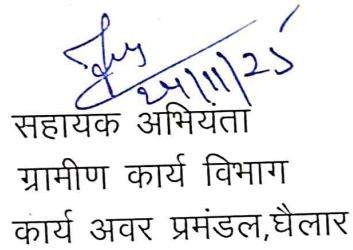 24/11/25
सहायक अभियंता
ग्रामीण कार्य विभाग
कार्य अवर प्रमंडल,घैलार